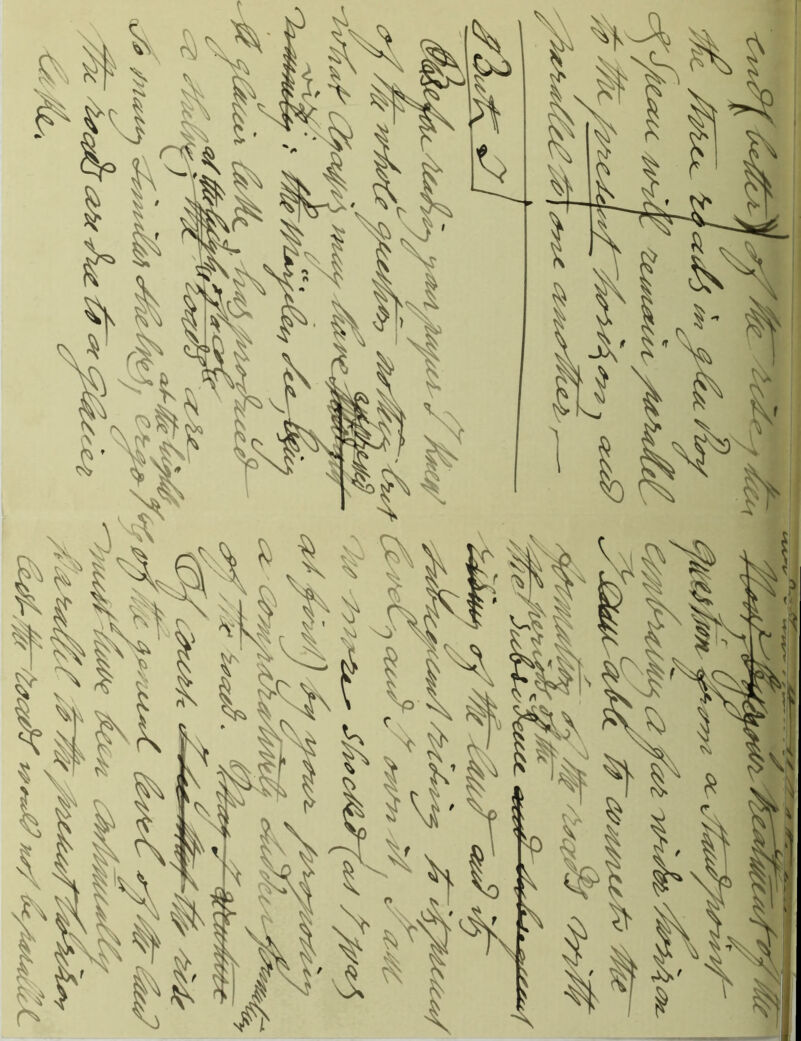 end (better) of the rise, then
the three roads in glen Roy
& Spean will remain parallel
to the present horizon, and
parallel to one another,—
But I
Before reading your paper I knew
of the whole question nothing but
what Agassiz may have expressed
viz: namely: the Märjelen See, being
a glacier lake, has produced
a shelve; the roads are
at the height of a col
so many similar shelves, ergo
at the hight of
the roads are due to a glacier
lake.
Now, by your treatment of the
question from a standpoint
embracing a far wider horizon
I am able to connect the
formation of the roads with
the period of the
subsidence and subsequent
rising of the land and its
subsequent rising to its present
level, and I own it, I am
no more shocked (as I was
at first) by your proposing
a comparatively sudden formation
of the road.
Of course I see that the rise
of the general level of the land
must have been continually
parallel to the present horizon
lest the roads would not be parallel